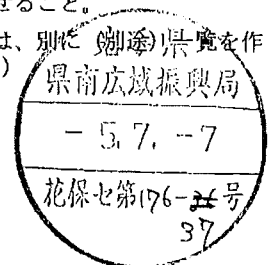 せること。
は、別に(別途)一覧を作
)
県
県南広域振興局
-5.7.-7
花保セ第176-26号
37